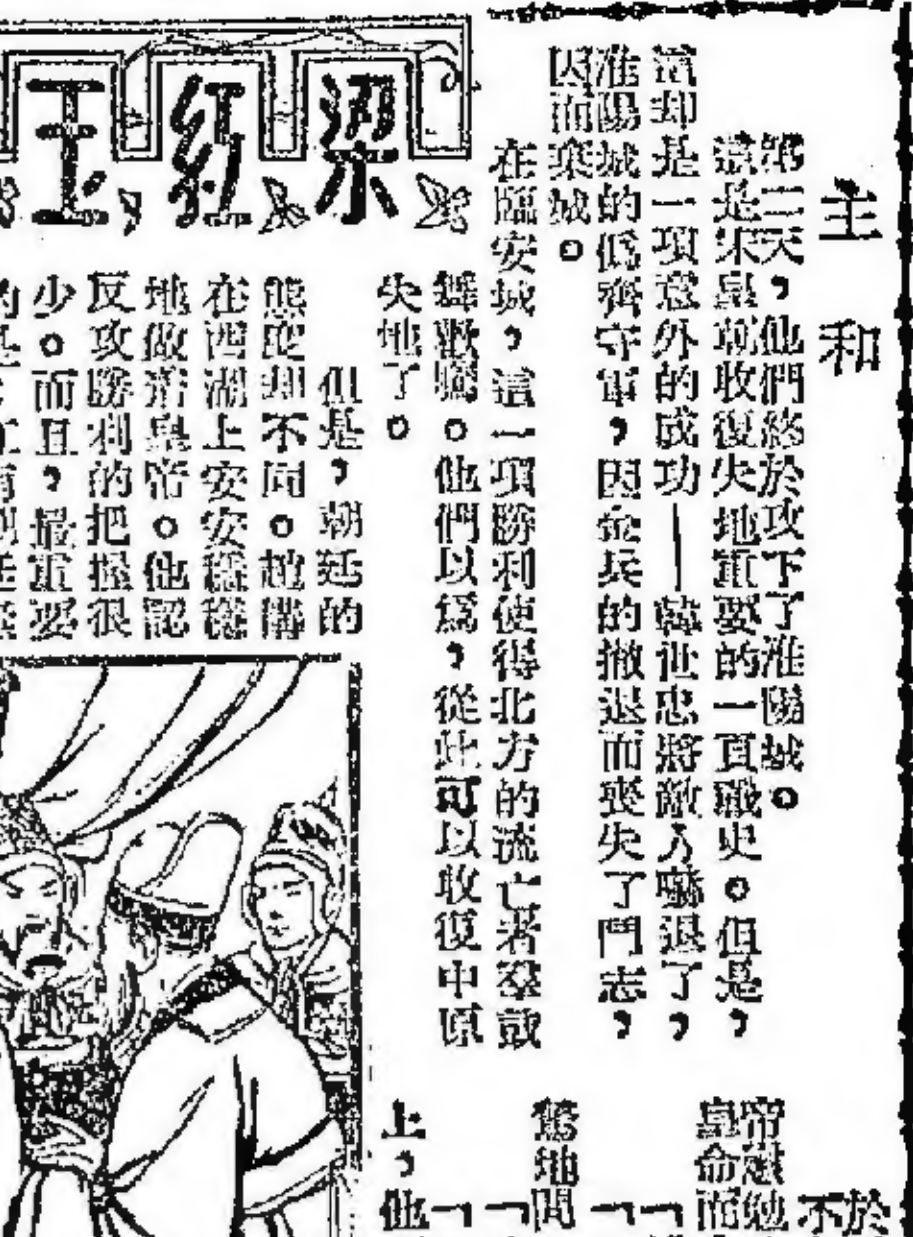 梁紅玉
主和
第二天，他們終於攻下了淮陽城。
這是宋皇朝收復失地重要的一頁歷史。但是，
這却是一項意外的成功——韓世忠將敵人嚇退了，
淮陽城的偽齊守軍，因金兵的撤退而喪失了鬥志，
因而棄城。
在臨安城，這一項勝利使得北方的流亡者羣鼓
舞歡騰。他們以爲，從此可以收復中原
失地了。
但是，朝廷的
態度却不同。趙構
在西湖上安安穩穩
地做着皇帝。他認
反攻勝利的把握很
少。而且，最重要
於
不
帝慰勉
皇命而
「
「
驚地問
「
「
上，他